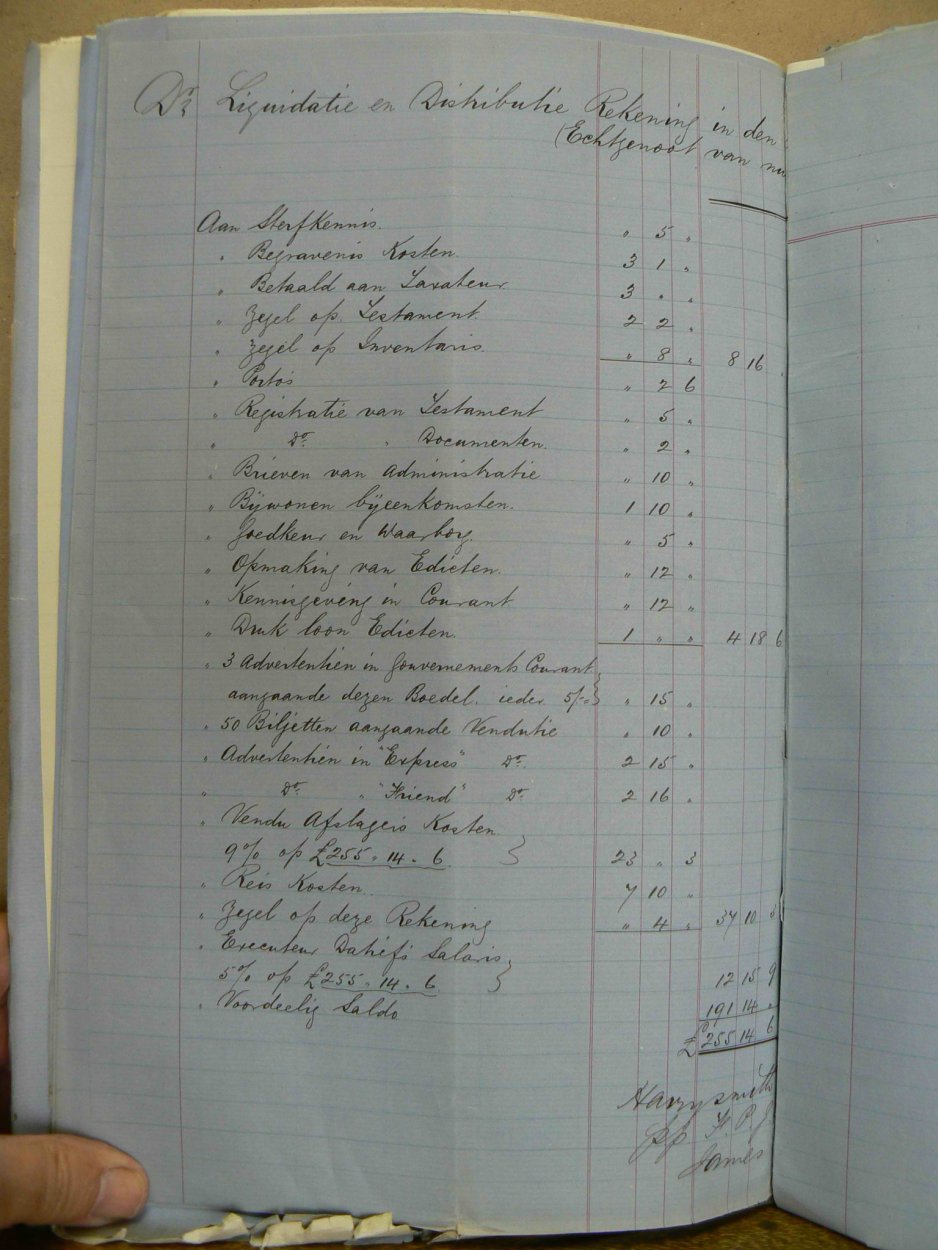 Dr Liquidatie en Distributie Rekening in den
(Echtgenoot van
Aan Sterfkennis. " 5 "
" Begravenis Kosten. 3 1 "
" Betaald aan Taxateur 3 " "
" Zegel op Testament. 2 2 "
" Zegel op Inventaris. " 8 " 8 16
" Porto's " 2 6
" Registratie van Testament " 5 "
" Do. " Documenten. " 2 "
" Brieven van Administratie " 10 "
" Bijwonen bijeenkomsten. 1 10 "
" Goedkeur en Waarborg. " 5 "
" Opmaking van Edicten. " 12 "
" Kennisgeving in Courant " 12 "
" Druk loon Edicten. 1 " " 4 18 6
" 3 Advertentien in Gouvernements Courant
aangaande dezen Boedel. ieder 5/- " 15 "
" 50 Biljetten aangaande Vendutie " 10 "
" Advertentien in "Express" Do. 2 15 "
" Do. " "Friend" Do. 2 16 "
" Vendu Afslagers Kosten
9% op £255 " 14 " 6 23 " 3
" Reis Kosten. 7 10 "
" Zegel op deze Rekening " 4 " 37 10 3
" Executeur Datiefs Salaris
5% op £255 " 14 " 6 12 15 9
" Voordeelig Saldo 191 14 "
£255 14 6
Harrysmith
pp F. P. J.
James